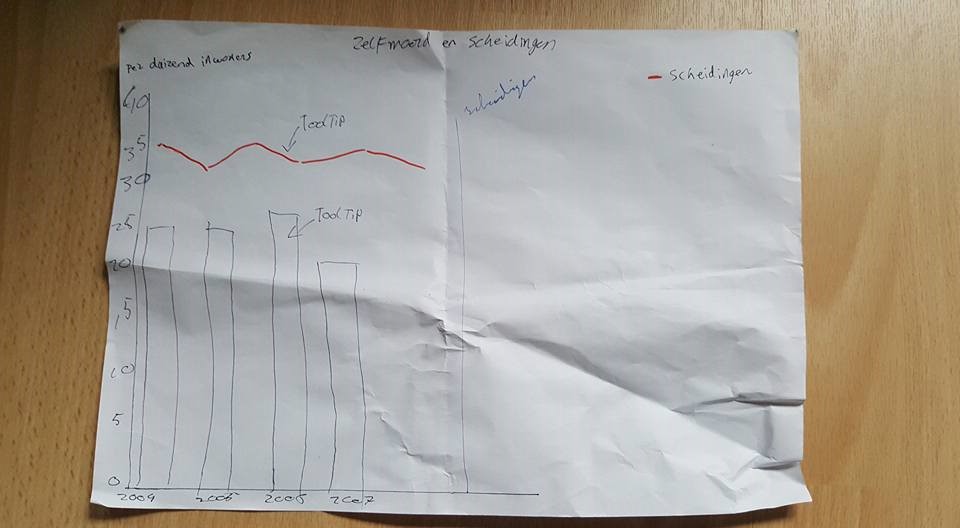 Zelfmoord en scheidingen
Per duizend inwoners
scheidingen
scheidingen
40
35
30
25
20
15
10
5
0
ToolTip
ToolTip
2004
2005
2006
2007